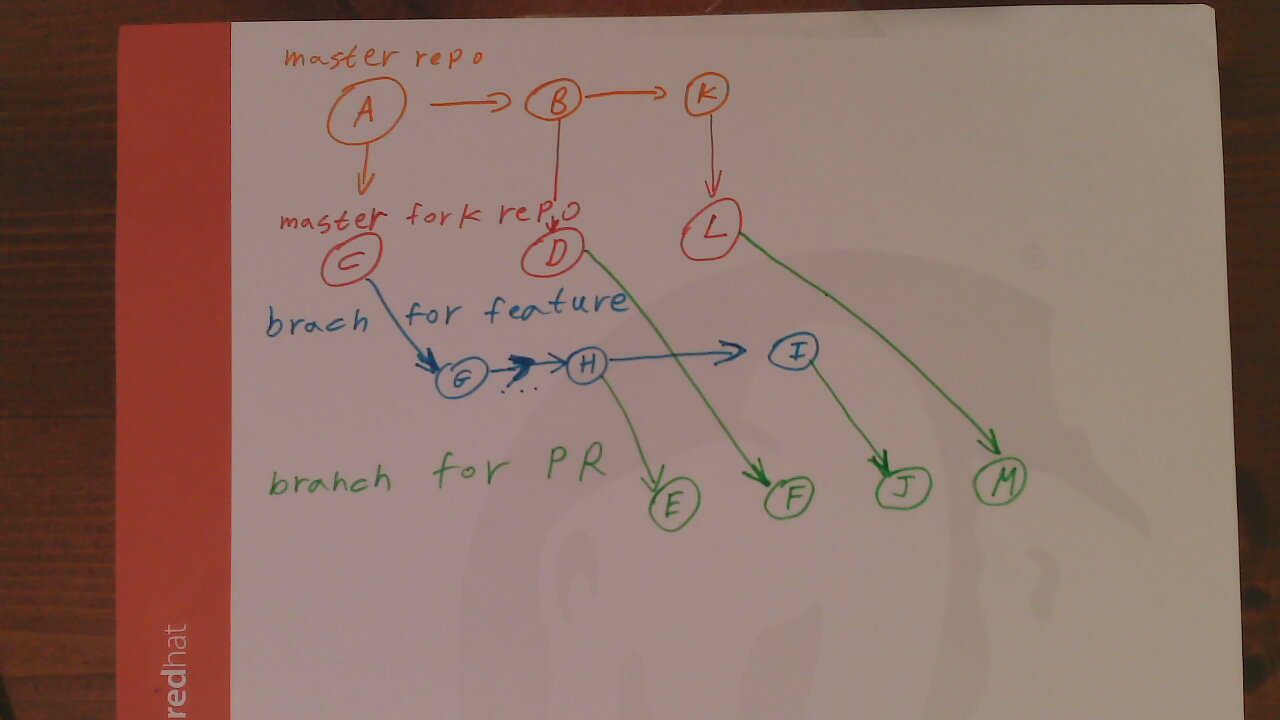 master repo
A B K
master fork repo
C D L
brach for feature
G ... H I
branch for PR
E F J M
redhat